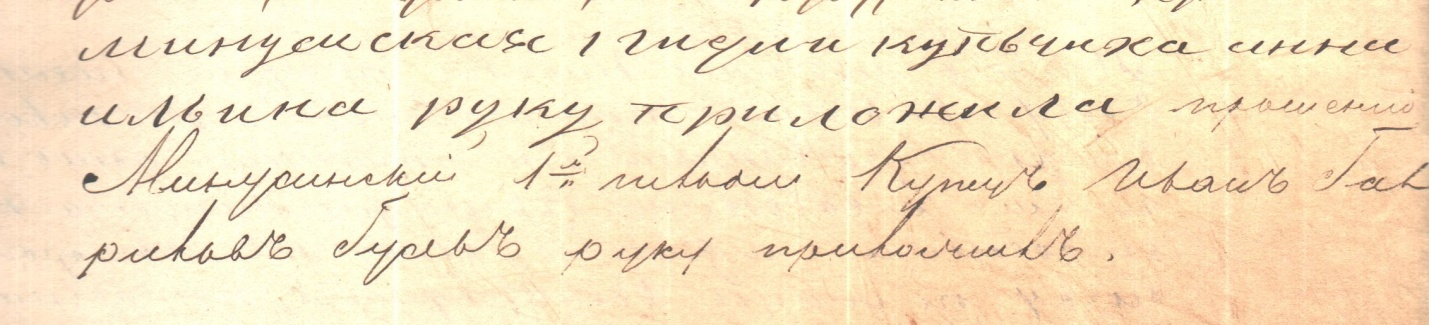 минусиская 1 гилди купьчиха анна
ильина руку приложила прошению
Минусинскій 1й гильдіи Купецъ Иванъ Гав
риловъ Гусевъ руку приложилъ.